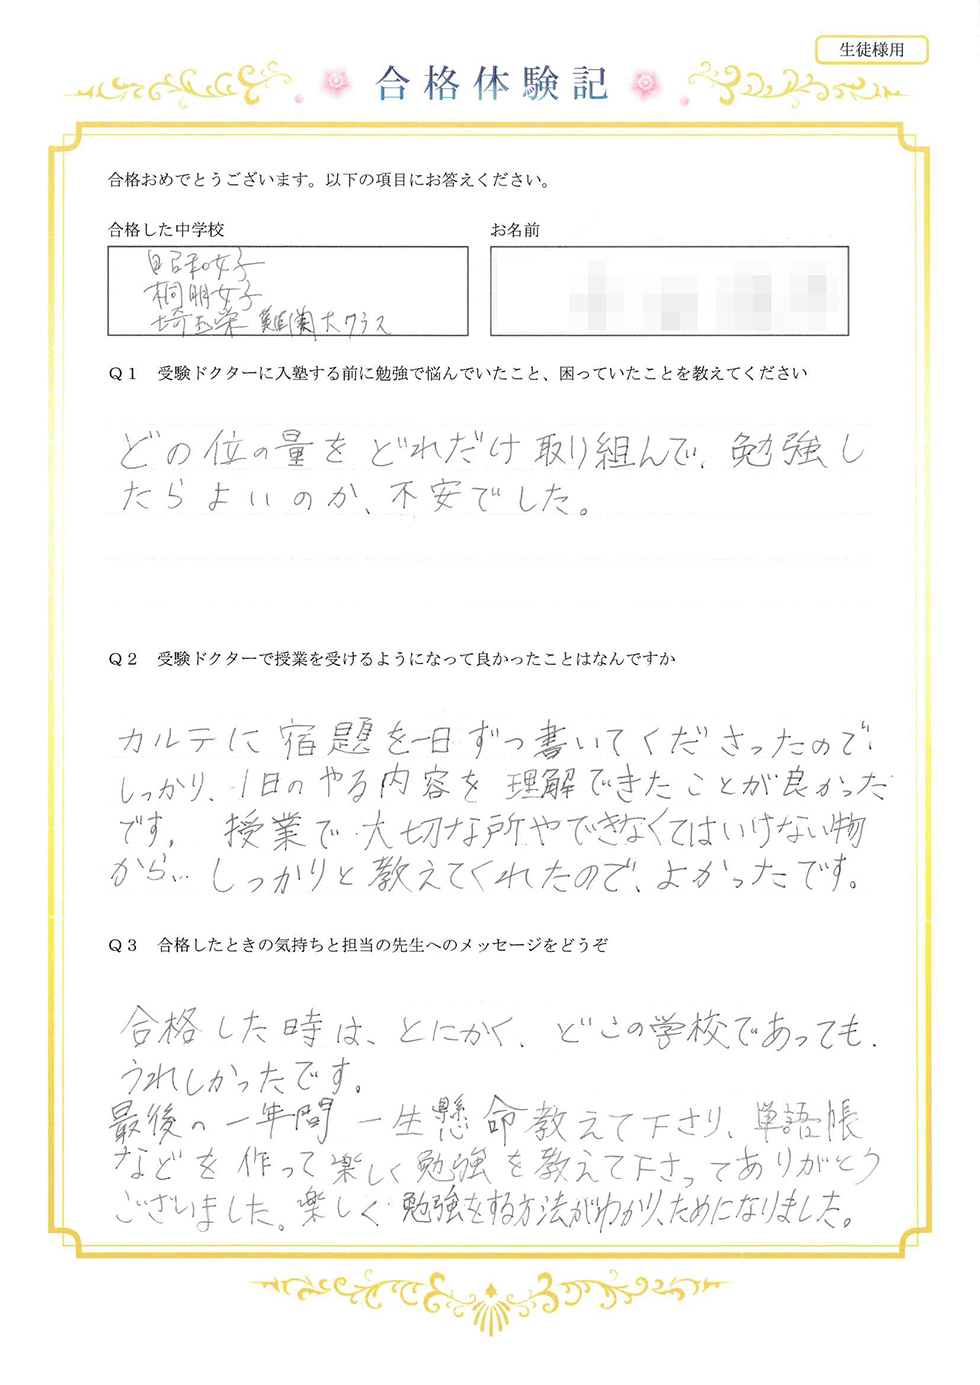 生徒様用
合格体験記
合格おめでとうございます。以下の項目にお答えください。
合格した中学校
お名前
昭和女子
桐朋女子
埼玉栄 難関大クラス
Q1 受験ドクターに入塾する前に勉強で悩んでいたこと、困っていたことを教えてください
どの位の量をどれだけ取り組んで、勉強し
たらよいのか、不安でした。
Q2 受験ドクターで授業を受けるようになって良かったことはなんですか
カルテに宿題を一日ずつ書いてくださったので、
しっかり、1日のやる内容を理解できたことが良かった
です。 授業で大切な所やできなくてはいけない物
から… しっかりと教えてくれたので、よかったです。
Q3 合格したときの気持ちと担当の先生へのメッセージをどうぞ
合格した時は、とにかく、どこの学校であっても、
うれしかったです。
最後の一年間 一生懸命教えて下さり、単語帳
などを作って楽しく勉強を教えて下さってありがとう
ございました。楽しく勉強をする方法がわかり、ためになりました。